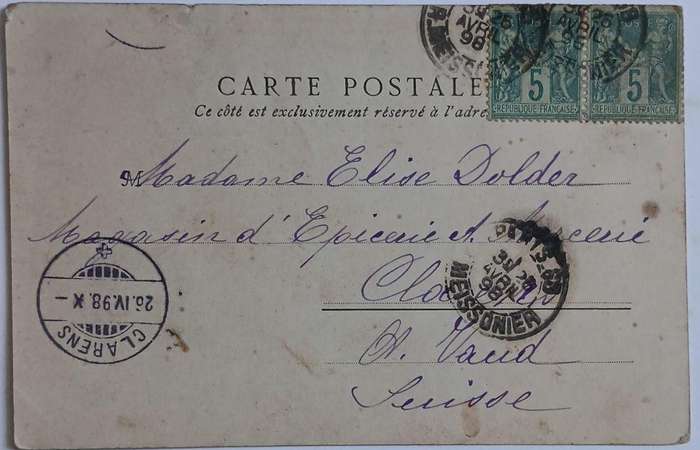 CARTE POSTALE
Ce côté est exclusivement réservé à l'adre
5 5
REPUBLIQUE FRANÇAISE REPUBLIQUE FRANÇAISE
AVRIL 98
R. MEISSONIER
M Madame Elise Dolder
Magasin d'Epicerie & Mercerie
Clarens
Ct. Vaud
Suisse
PARIS
AVRIL
98
MEISSONIER
26.IV.98.X-
CLARENS